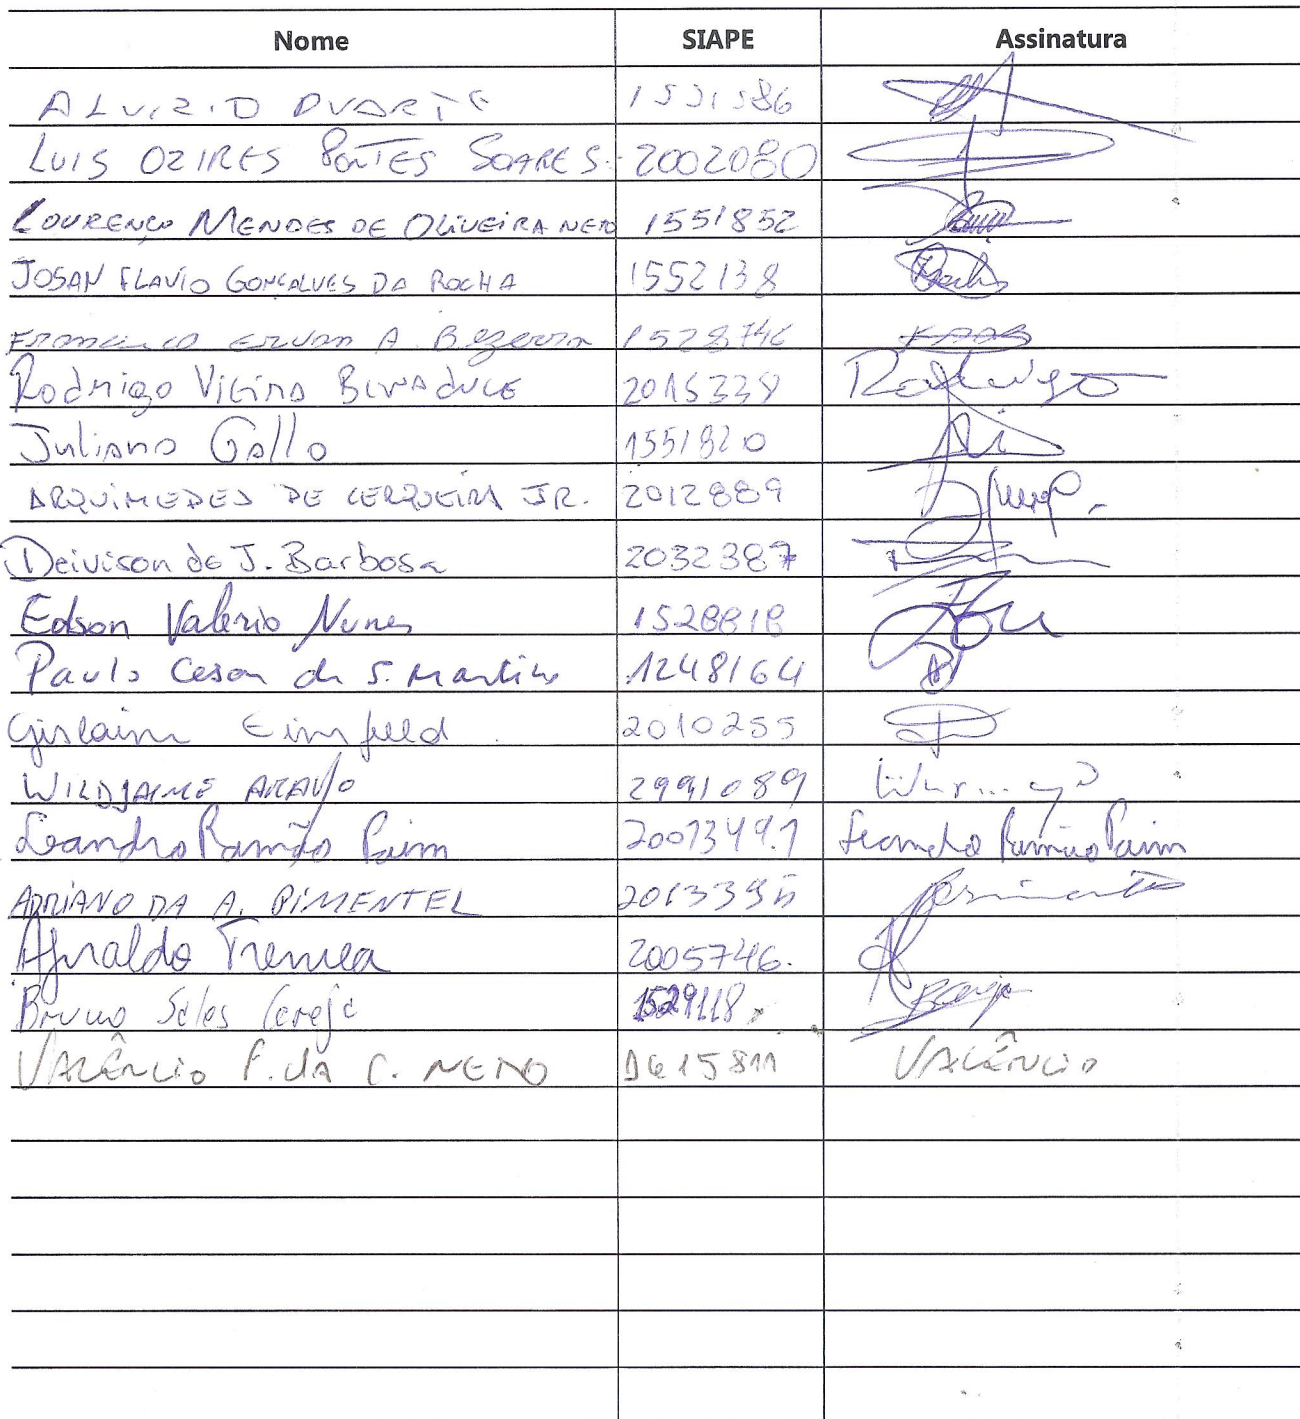 Nome SIAPE Assinatura
ALUIZIO DUARTE 1531586
LUIS OZIRES PONTES SOARES 2002080
LOURENÇO MENDES DE OLIVEIRA NETO 1551852
JOSAN FLAVIO GONÇALVES DA ROCHA 1552138 Rocha
Francisco Erivan A. Bezerra 1528746
Rodrigo Vieira 2015338 Rodrigo
Juliano Gallo 1551820
ARQUIMEDES DE CERQUEIRA JR. 2012889
Deivison de J. Barbosa 2032387
Edson Valerio Nunes 1528818
Paulo Cesar de S. Martins 1248164
Gislaine 2010255
WILDJAIME ARAUJO 2991089
Leandro Ramão Paim 2001349.1 Leandro Ramão Paim
ADRIANO DA A. PIMENTEL Pimentel
Tremea 2005746.
Bruno Sales Cereja 1529118
VALÊNCIO F. da C. NETO 1615811 VALÊNCIO